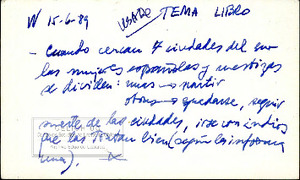 W 15-6-89 USADO TEMA LIBRO
- Cuando cercan 7 ciudades del sur
las mujeres españolas y mestizas
se dividen: unas partir
otras quedarse, seguir
suerte de las ciudades, irse con indios
que las tratan bien (según la informa
una). X